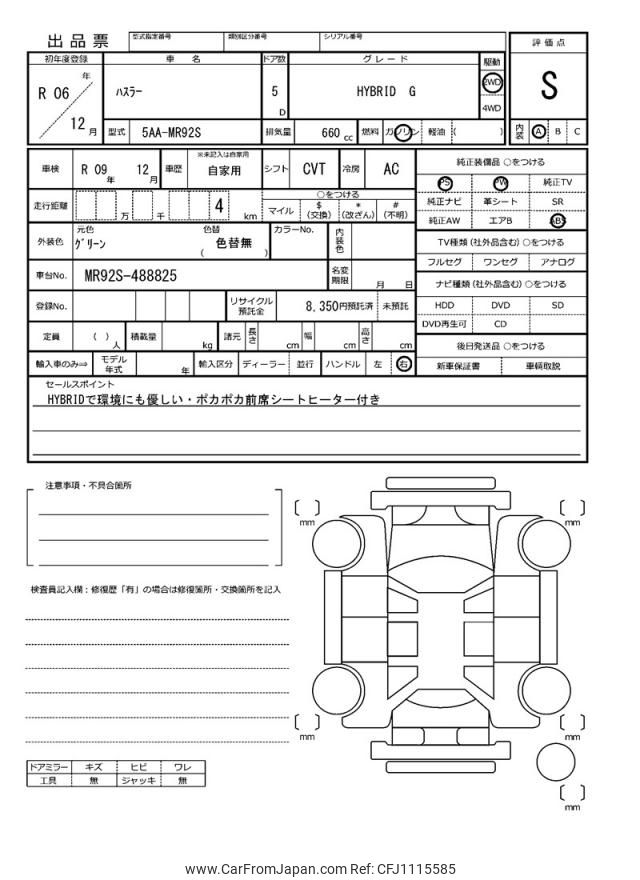 出品票 型式指定番号 類別区分番号 シリアル番号
評価点
S
初年度登録 車名 ドア数 グレード 駆動
R 06 年 12 月 ハスラー 5 D HYBRID G 2WD
4WD
型式 5AA-MR92S 排気量 660 cc 燃料 ガソリン 軽油 ( )
内装 A B C
車検 R 09 年 12 月 車歴 ※未記入は自家用 自家用 シフト CVT 冷房 AC
純正装備品 ○をつける
PS PW 純正TV
純正ナビ 革シート SR
純正AW エアB ABS
走行距離 万 千 4 km
○をつける
マイル $ (交換) * (改ざん) # (不明)
外装色 元色 グリーン 色替 色替無 ( ) カラーNo. 内装色
TV種類 (社外品含む) ○をつける
フルセグ ワンセグ アナログ
車台No. MR92S-488825 名変期限 月 日
ナビ種類 (社外品含む) ○をつける
HDD DVD SD
DVD再生可 CD
登録No. リサイクル預託金 8,350円預託済 未預託
定員 ( ) 人 積載量 kg 諸元 長さ cm 幅 cm 高さ cm
後日発送品 ○をつける
新車保証書 車輌取説
輸入車のみ⇒ モデル年式 年 輸入区分 ディーラー 並行 ハンドル 左 右
セールスポイント
HYBRIDで環境にも優しい・ポカポカ前席シートヒーター付き
注意事項・不具合箇所
検査員記入欄：修復歴「有」の場合は修復箇所・交換箇所を記入
ドアミラー キズ ヒビ ワレ
工具 無 ジャッキ 無
mm
mm
mm
mm
mm
www.CarFromJapan.com Ref: CFJ1115585